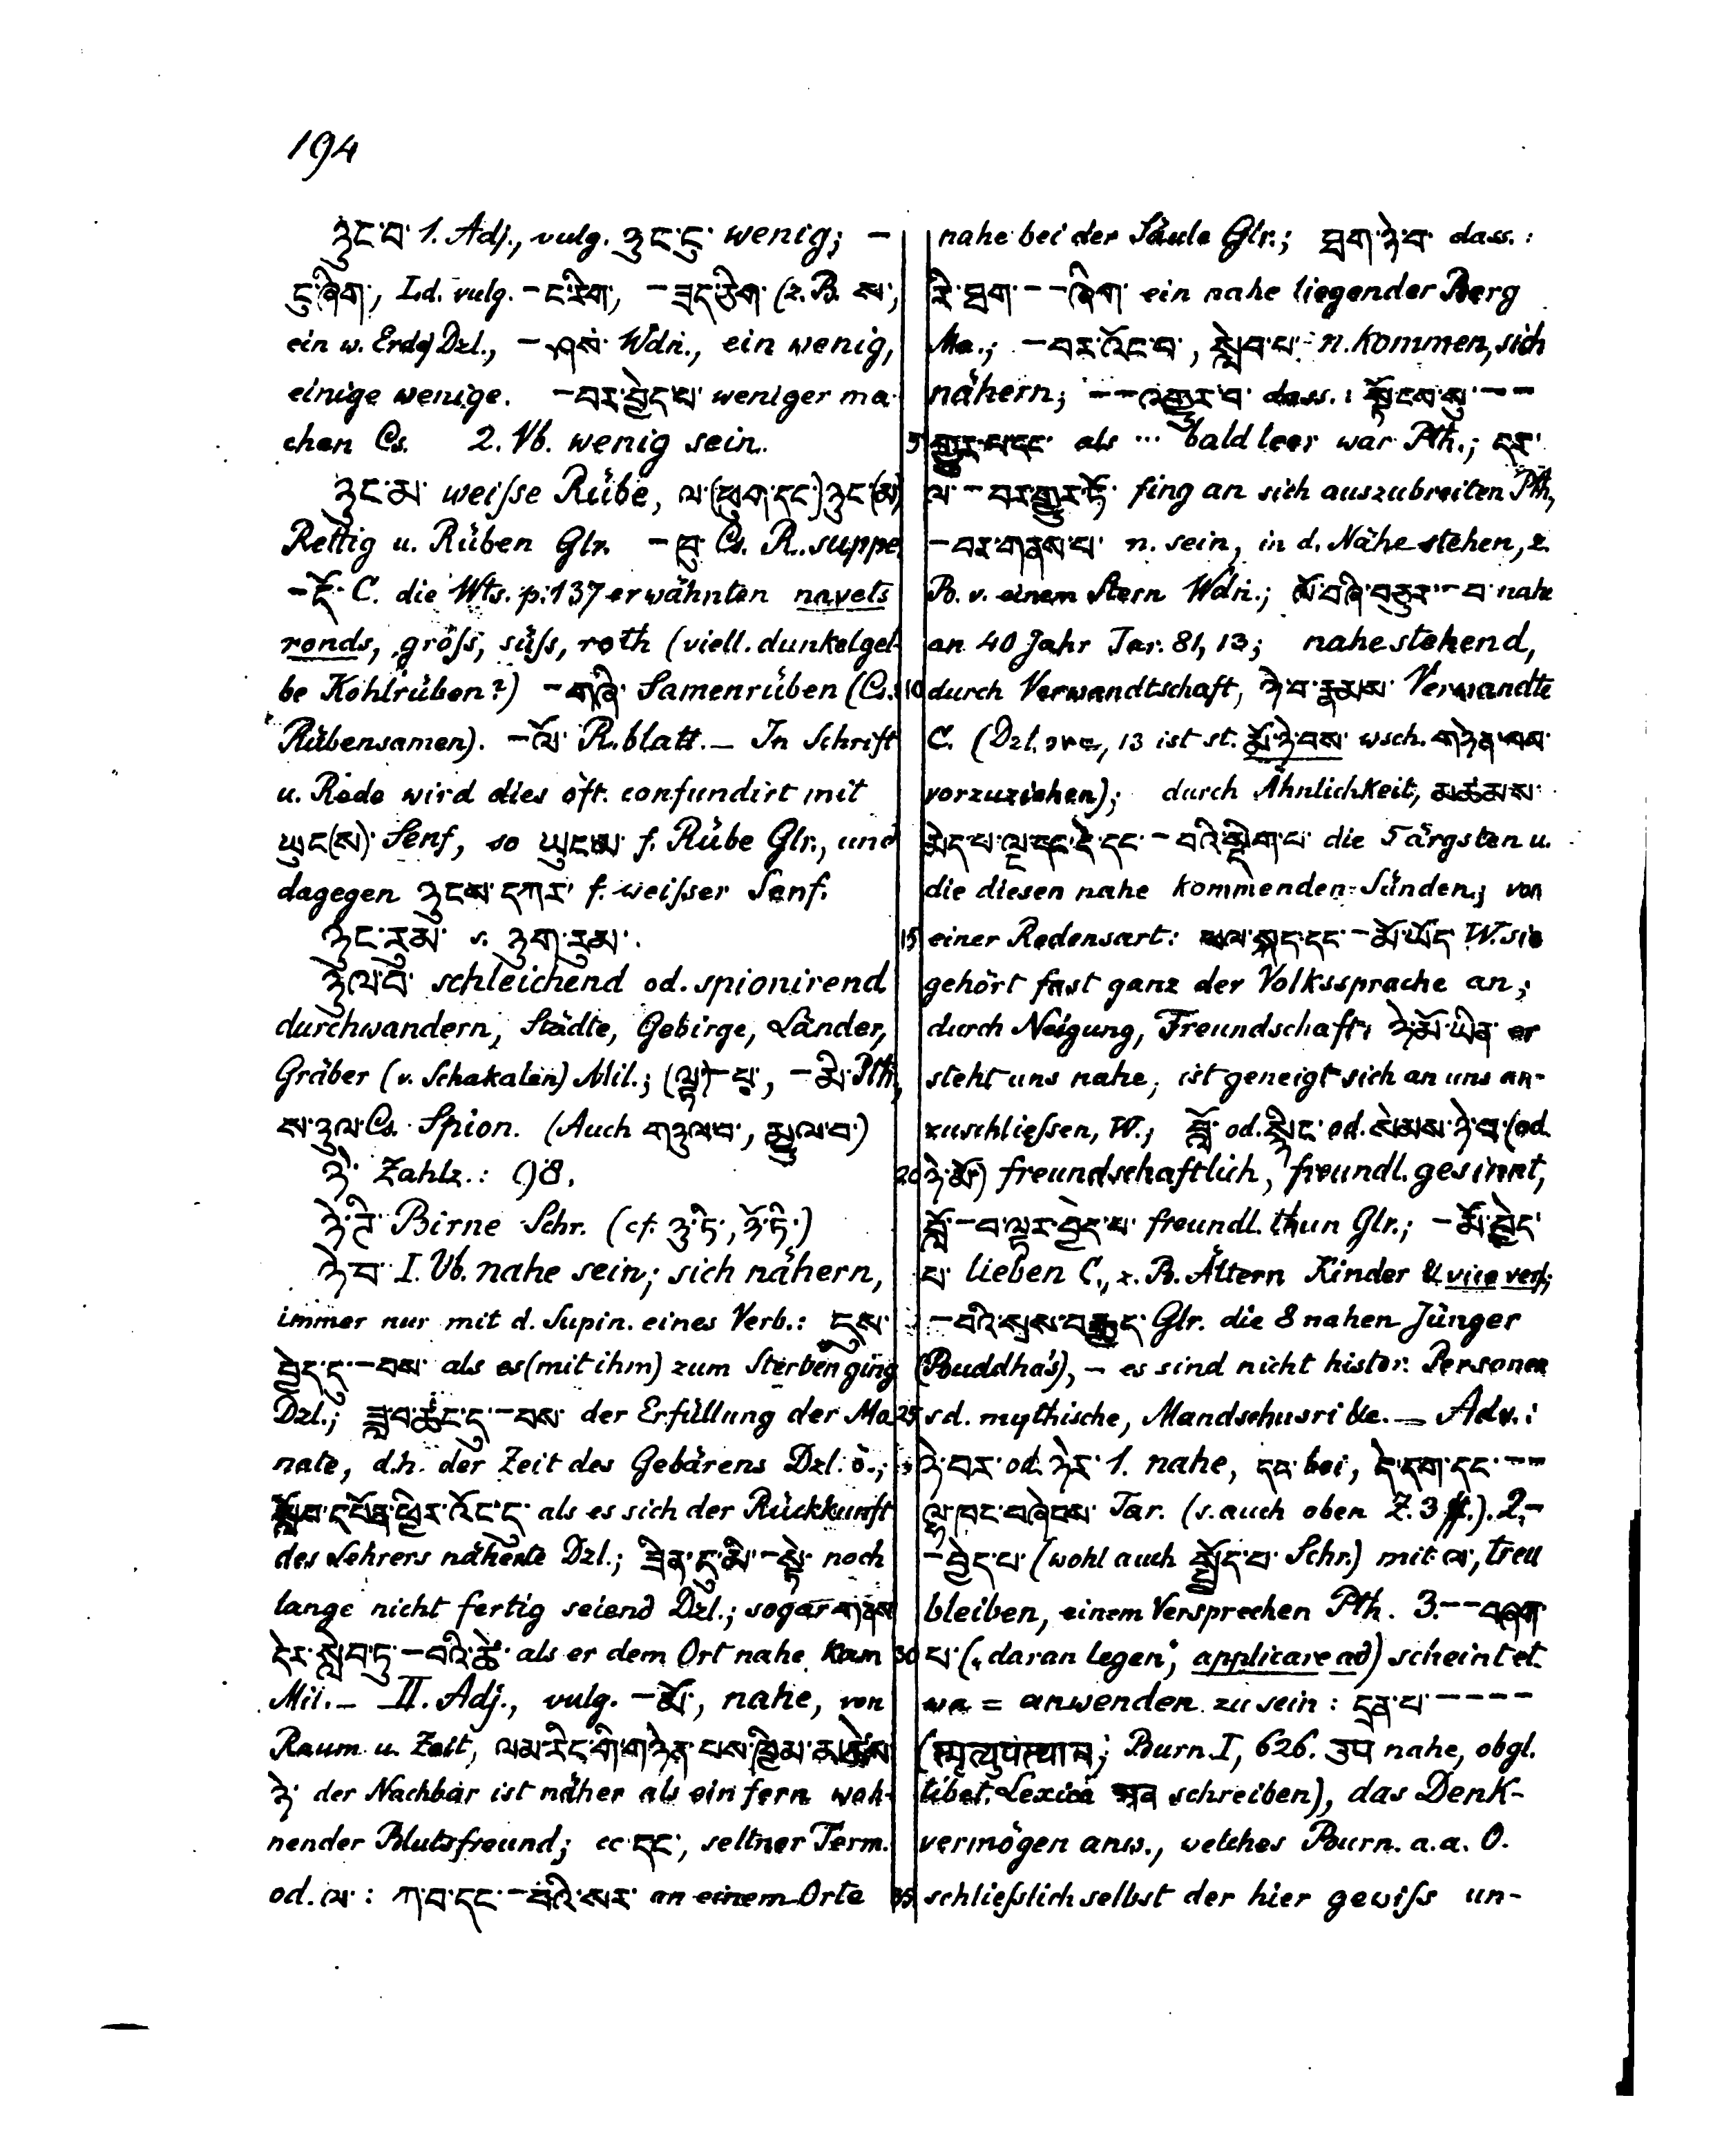 194
ཉུང་བ་ 1. Adj., vulg. ཉུང་ངུ་ wenig; –
ངུ་ཞིག་, Ld. vulg. – ང་རིག་, – ཟད་ཅིག་ (z. B. ས་,
ein w. Erde) Dzl., – ཤས་ Wdn., ein wenig,
einige wenige. – བར་བྱེད་པ་ weniger ma-
chen Cs. 2. Vb. wenig sein.
ཉུང་མ་ weiſse Rübe, ལ་(ཕུག་དང་)ཉུང་(མ)
Rettig u. Rüben Glr. – ཁུ་ Cs. R.suppe
– C. die Wts. p. 137 erwähnten navets
ronds, groſs, süſs, roth (viell. dunkelgel-
be Kohlrüben?) – གཞི་ Samenrüben (Cs.:
Rübensamen). – ལོ་ R.blatt. – In Schrift
u. Rede wird dies öft. confundirt mit
ཡུང(ས)་ Senf, so ཡུངམ་ f. Rübe Glr., und
dagegen ཉུངས་དཀར་ f. weiſser Senf.
ཉུང་རུམ་ s. ཉུག་རུམ་.
ཉུལ་བ་ schleichend od. spionirend
durchwandern, Städte, Gebirge, Länder,
Gräber (v. Schakalen) Mil.; (ལྟ)– པ་, – མི་ Pth.,
ས་ཉུལ་ Cs. Spion. (Auch གཉུལ་བ་, མྱུལ་བ་)
ཉེ་ Zahlz.: 98.
ཉེ་ཏི་ Birne Schr. (cf. ཉུ་ཏི་, ཉོ་ཏི་)
ཉེ་བ་ I. Vb. nahe sein; sich nähern,
immer nur mit d. Supin. eines Verb.: དུས་
བྱེད་དུ་ – བས་ als es (mit ihm) zum Sterben ging
Dzl.; ཟླ་བ་ཚང་དུ་ – བས་ der Erfüllung der Mo-
nate, d.h. der Zeit des Gebärens Dzl. ö.;
སློབ་དཔོན་ཕྱིར་འོང་དུ་ als es sich der Rückkunft
des Lehrers näherte Dzl.; ཟིན་དུ་མི་ – སྟེ་ noch
lange nicht fertig seiend Dzl.; sogar གནས
དེར་སླེབ་ཏུ་ – བའི་ཚེ་ als er dem Ort nahe kam
Mil. – II. Adj., vulg. – མོ་, nahe, von
Raum u. Zeit, ལམ་རིང་གི་གཉེན་པས་ཁྱིམ་མཚེས
ཉེ་ der Nachbar ist näher als ein fern woh-
nender Blutsfreund; cc དང་, seltner Term.
od. ལ་: ཀ་བ་དང་ – བའི་སར་ an einem Orte
nahe bei der Säule Glr.; ཐག་ཉེ་བ་ dass.:
རི་ཐག་ – – ཞིག་ ein nahe liegender Berg
Ma.; – བར་འོང་བ་, སླེབ་པ་ n. kommen, sich
nähern; – – འགྱུར་བ་ dass.: སྟོངས་སུ་ – –
5 གྱུར་པ་དང་ als ... bald leer war Pth.; དར་
ལ་ – བར་གྱུར་ཏོ་ fing an sich auszubreiten Pth.,
– བར་གནས་པ་ n. sein, in d. Nähe stehen, z.
B. v. einem Stern Wdn.; ལོ་བཞི་བཅུར་ – བ་ nahe
an 40 Jahr Tar. 81, 13; nahe stehend,
10 durch Verwandtschaft, ཉེ་བ་རྣམས་ Verwandte
C. (Dzl., 13 ist st. མོ་ཉེ་བས་ wsch. གཉེན་བས་
vorzuziehen); durch Ähnlichkeit, མཚམས་
མེད་པ་ལྔ་དང་དེ་དང་ – བའི་སྡིག་པ་ die 5 ärgsten u.
die diesen nahe kommenden Sünden; von
15 einer Redensart: ཕལ་སྐད་དང་ – མོ་ཡོད་ W. sie
gehört fast ganz der Volkssprache an;
durch Neigung, Freundschaft, ཉེ་མོ་ཡིན་ er
steht uns nahe, ist geneigt sich an uns an-
zuschlieſsen, W.; བློ་ od. སྙིང་ od. སེམས་ཉེ་བ་ (od.
20 ཉེ་མོ་) freundschaftlich, freundl. gesinnt,
བློ་ – བ་ལྟར་བྱེད་པ་ freundl. thun Glr.; – མོ་བྱེད་
པ་ lieben C., z. B. Ältern Kinder & vice vers.;
– བའི་སྲས་བརྒྱད་ Glr. die 8 nahen Jünger
(Buddha's), – es sind nicht histor. Personen
25 sd. mythische, Mandschusri &c. – Adv.:
ཉེ་བར་ od. ཉེར་ 1. nahe, དང་ bei, དེ་དག་དང་ – –
ལྷ་ཁང་བཞེངས་ Tar. (s. auch oben Z. 3 ff.). 2. –
– བྱེད་པ་ (wohl auch སྤྱོད་པ་ Schr.) mit ལ་, treu
bleiben, einem Versprechen Pth. 3. – – བཞག་
30 པ་ („daran legen“, applicare ad) scheint et-
wa = anwenden zu sein: དྲན་པ་ – – – –
(स्मृत्युपस्थान; Burn. I, 626. उप nahe, obgl.
tibet. Lexica schreiben), das Denk-
vermögen anw., welches Burn. a. a. O.
35 schlieſslich selbst der hier gewiſs un-